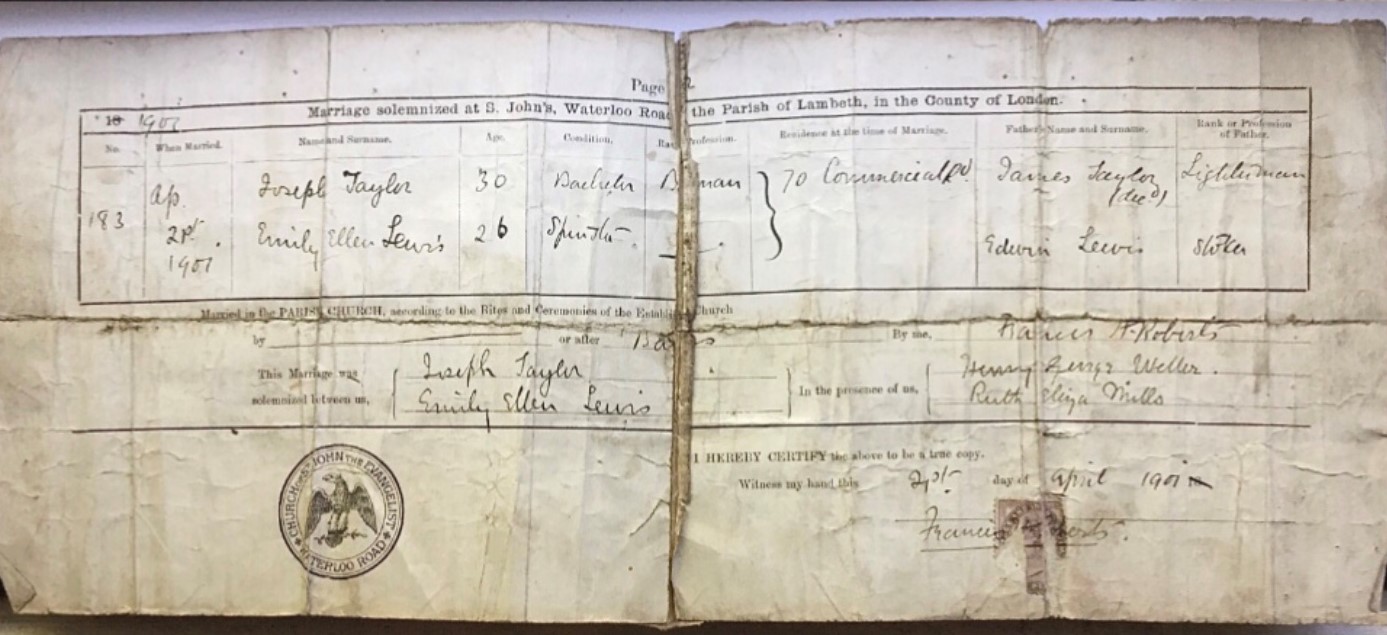 Page 2
Marriage solemnized at S. John's, Waterloo Road the Parish of Lambeth, in the County of London.
18 1901
No. When Married. Name and Surname. Age. Condition. Profession. Residence at the time of Marriage. Father's Name and Surname. Rank or Profession of Father.
183 Ap. 21st. 1901 Joseph Taylor 30 Bachelor man 70 Commercial Rd. James Taylor (dec'd) Lighterman
Emily Ellen Lewis 26 Spinster Edwin Lewis Stoker
Married in the PARISH CHURCH, according to the Rites and Ceremonies of the Church
by or after Banns By me, Francis H. Roberts
This Marriage was solemnized between us, Joseph Taylor
Emily Ellen Lewis
In the presence of us, Henry George Weller.
Ruth Eliza Mills
I HEREBY CERTIFY the above to be a true copy.
Witness my hand this 21st day of April 1901
Francis Roberts.
CHURCH OF ST JOHN THE EVANGELIST WATERLOO ROAD